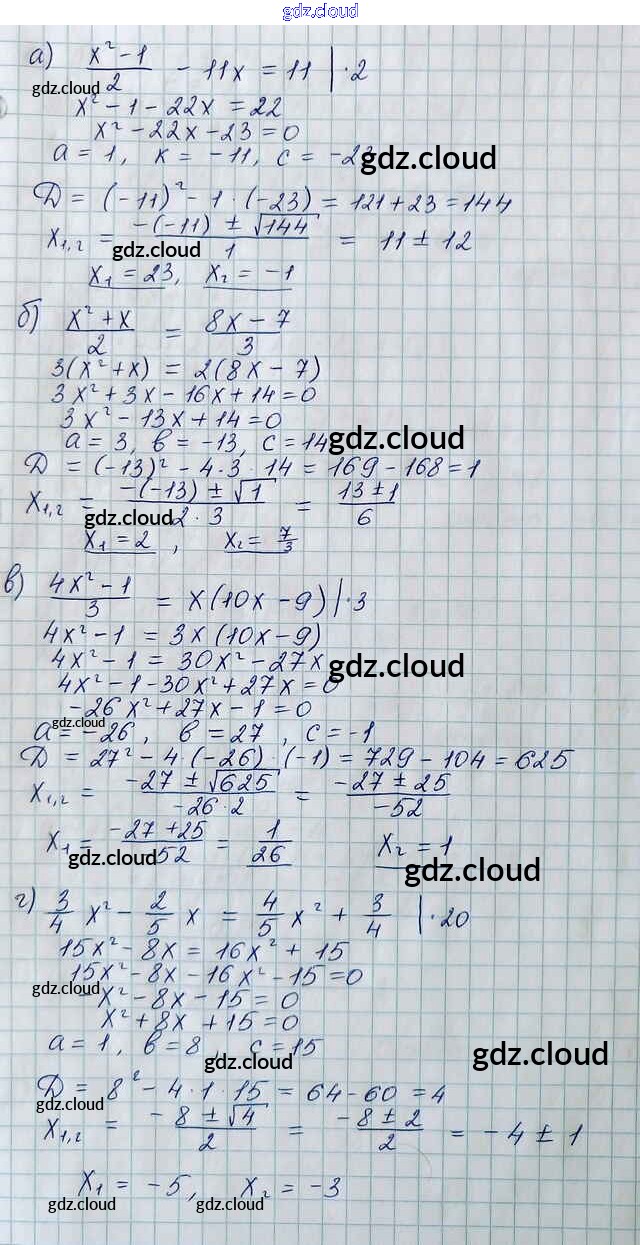 gdz.cloud
а) (x² − 1)/2 − 11x = 11 | · 2
gdz.cloud
x² − 1 − 22x = 22
x² − 22x − 23 = 0
a = 1, к = −11, c = −23
gdz.cloud
D = (−11)² − 1 · (−23) = 121 + 23 = 144
x₁,₂ = (−(−11) ± √144)/1 = 11 ± 12
gdz.cloud
x₁ = 23, x₂ = −1
б) (x² + x)/2 = (8x − 7)/3
3(x² + x) = 2(8x − 7)
3x² + 3x − 16x + 14 = 0
3x² − 13x + 14 = 0
a = 3, в = −13, c = 14
gdz.cloud
D = (−13)² − 4 · 3 · 14 = 169 − 168 = 1
x₁,₂ = (−(−13) ± √1)/(2 · 3) = (13 ± 1)/6
gdz.cloud
x₁ = 2, x₂ = 7/3
в) (4x² − 1)/3 = x(10x − 9) | · 3
4x² − 1 = 3x(10x − 9)
4x² − 1 = 30x² − 27x
gdz.cloud
4x² − 1 − 30x² + 27x = 0
−26x² + 27x − 1 = 0
gdz.cloud
a = −26, в = 27, c = −1
D = 27² − 4 · (−26) · (−1) = 729 − 104 = 625
x₁,₂ = (−27 ± √625)/(−26 · 2) = (−27 ± 25)/(−52)
x₁ = (−27 + 25)/(−52) = 1/26 x₂ = 1
gdz.cloud
gdz.cloud
г) 3/4 x² − 2/5 x = 4/5 x² + 3/4 | · 20
15x² − 8x = 16x² + 15
15x² − 8x − 16x² − 15 = 0
gdz.cloud
−x² − 8x − 15 = 0
x² + 8x + 15 = 0
a = 1, в = 8, c = 15
gdz.cloud
D = 8² − 4 · 1 · 15 = 64 − 60 = 4
gdz.cloud
x₁,₂ = (−8 ± √4)/2 = (−8 ± 2)/2 = −4 ± 1
x₁ = −5, x₂ = −3
gdz.cloud
gdz.cloud